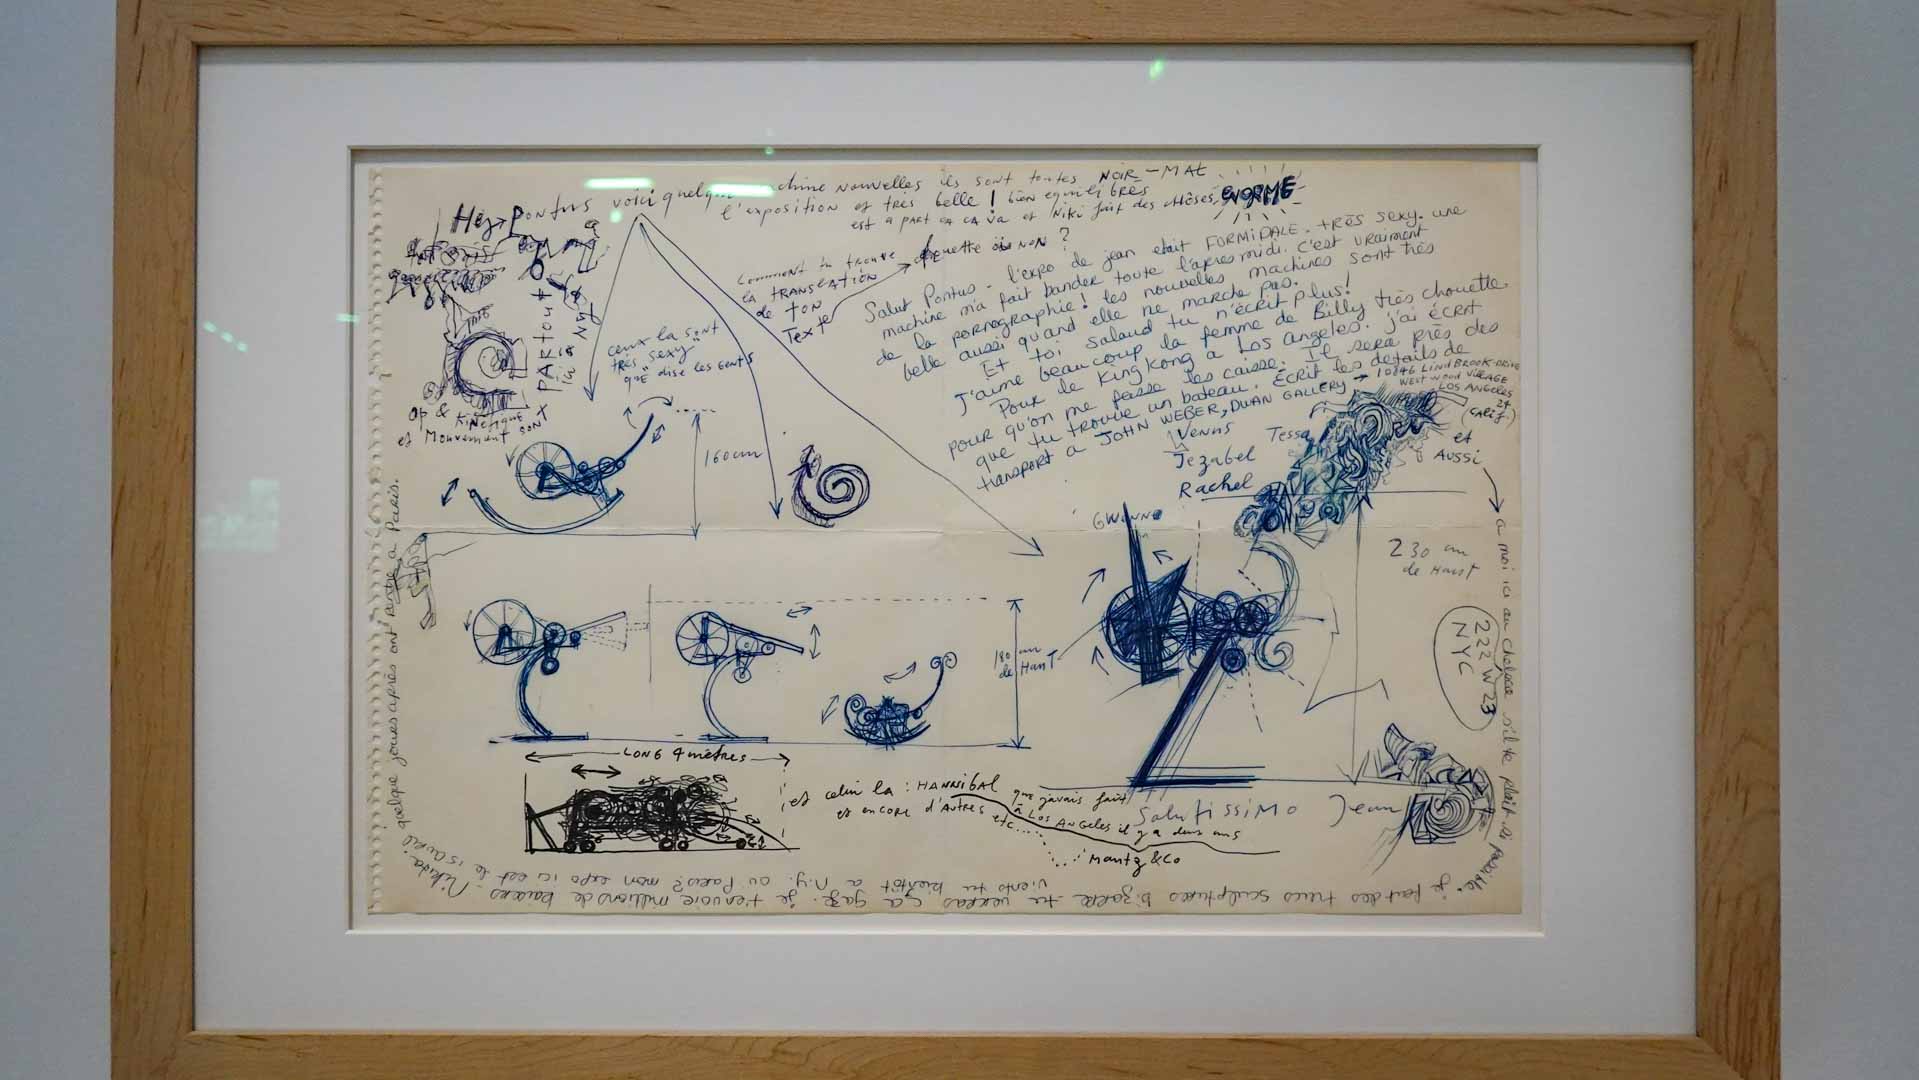 Hey Pontus voici quelque chine nouvelles ils sont toutes NOIR-MAT
l'exposition et très belle! bien equilibrés
est a part ça ca va et Niki fait des chôses, ENORME
Comment tu trouve
la TRANSLATION
de TON
Texte
chouette ou NON ?
Salut Pontus - l'expo de jean etait FORMIDALE. TRÈS sexy. une
machine m'a fait bander toute l'apres midi. C'est vraiment
de la pornographie! les nouvelles machines sont très
belle aussi quand elle ne marche pas.
Et toi salaud tu n'écrit plus!
J'aime beaucoup la femme de Billy très chouette.
Pour le King Kong a Los Angeles. j'ai ÉCRIT
pour qu'on me fasse les caisse. Il sera près des
que tu trouve un bateau. Écrit les details de
transport a JOHN WEBER, DWAN GALLERY → 10846 LINDBROOK-DRIVE
WESTWOOD VILLAGE
LOS ANGELES
24
(CALIF.)
et
AUSSI
a moi ici au chelsea s'il te plait si possible.
222 W 23
NYC
PARTOUT
ici à
NY
op & KINETIQUE
et Mouvement SONT
ceux la sont
très "sexy"
que dise les gents
160 cm
Venus
Tessa
Jezabel
Rachel
GWENN
230 cm
de Haut
180 cm
de Haut
LONG 4 mètres
et celui la : HANNIBAL que j'avais fait
à LOS ANGELES il y a deux ans
et encore d'autres etc...
Mantz & Co
Salutissimo Jean
je fait des trucs sculptures bizarre tu verras ça gaze. je t'envoie millions de baisers
viens tu bientôt a N.Y. ou Paris? mon expo ici est le 15 avril
quelque jours après ont rentre a Paris.